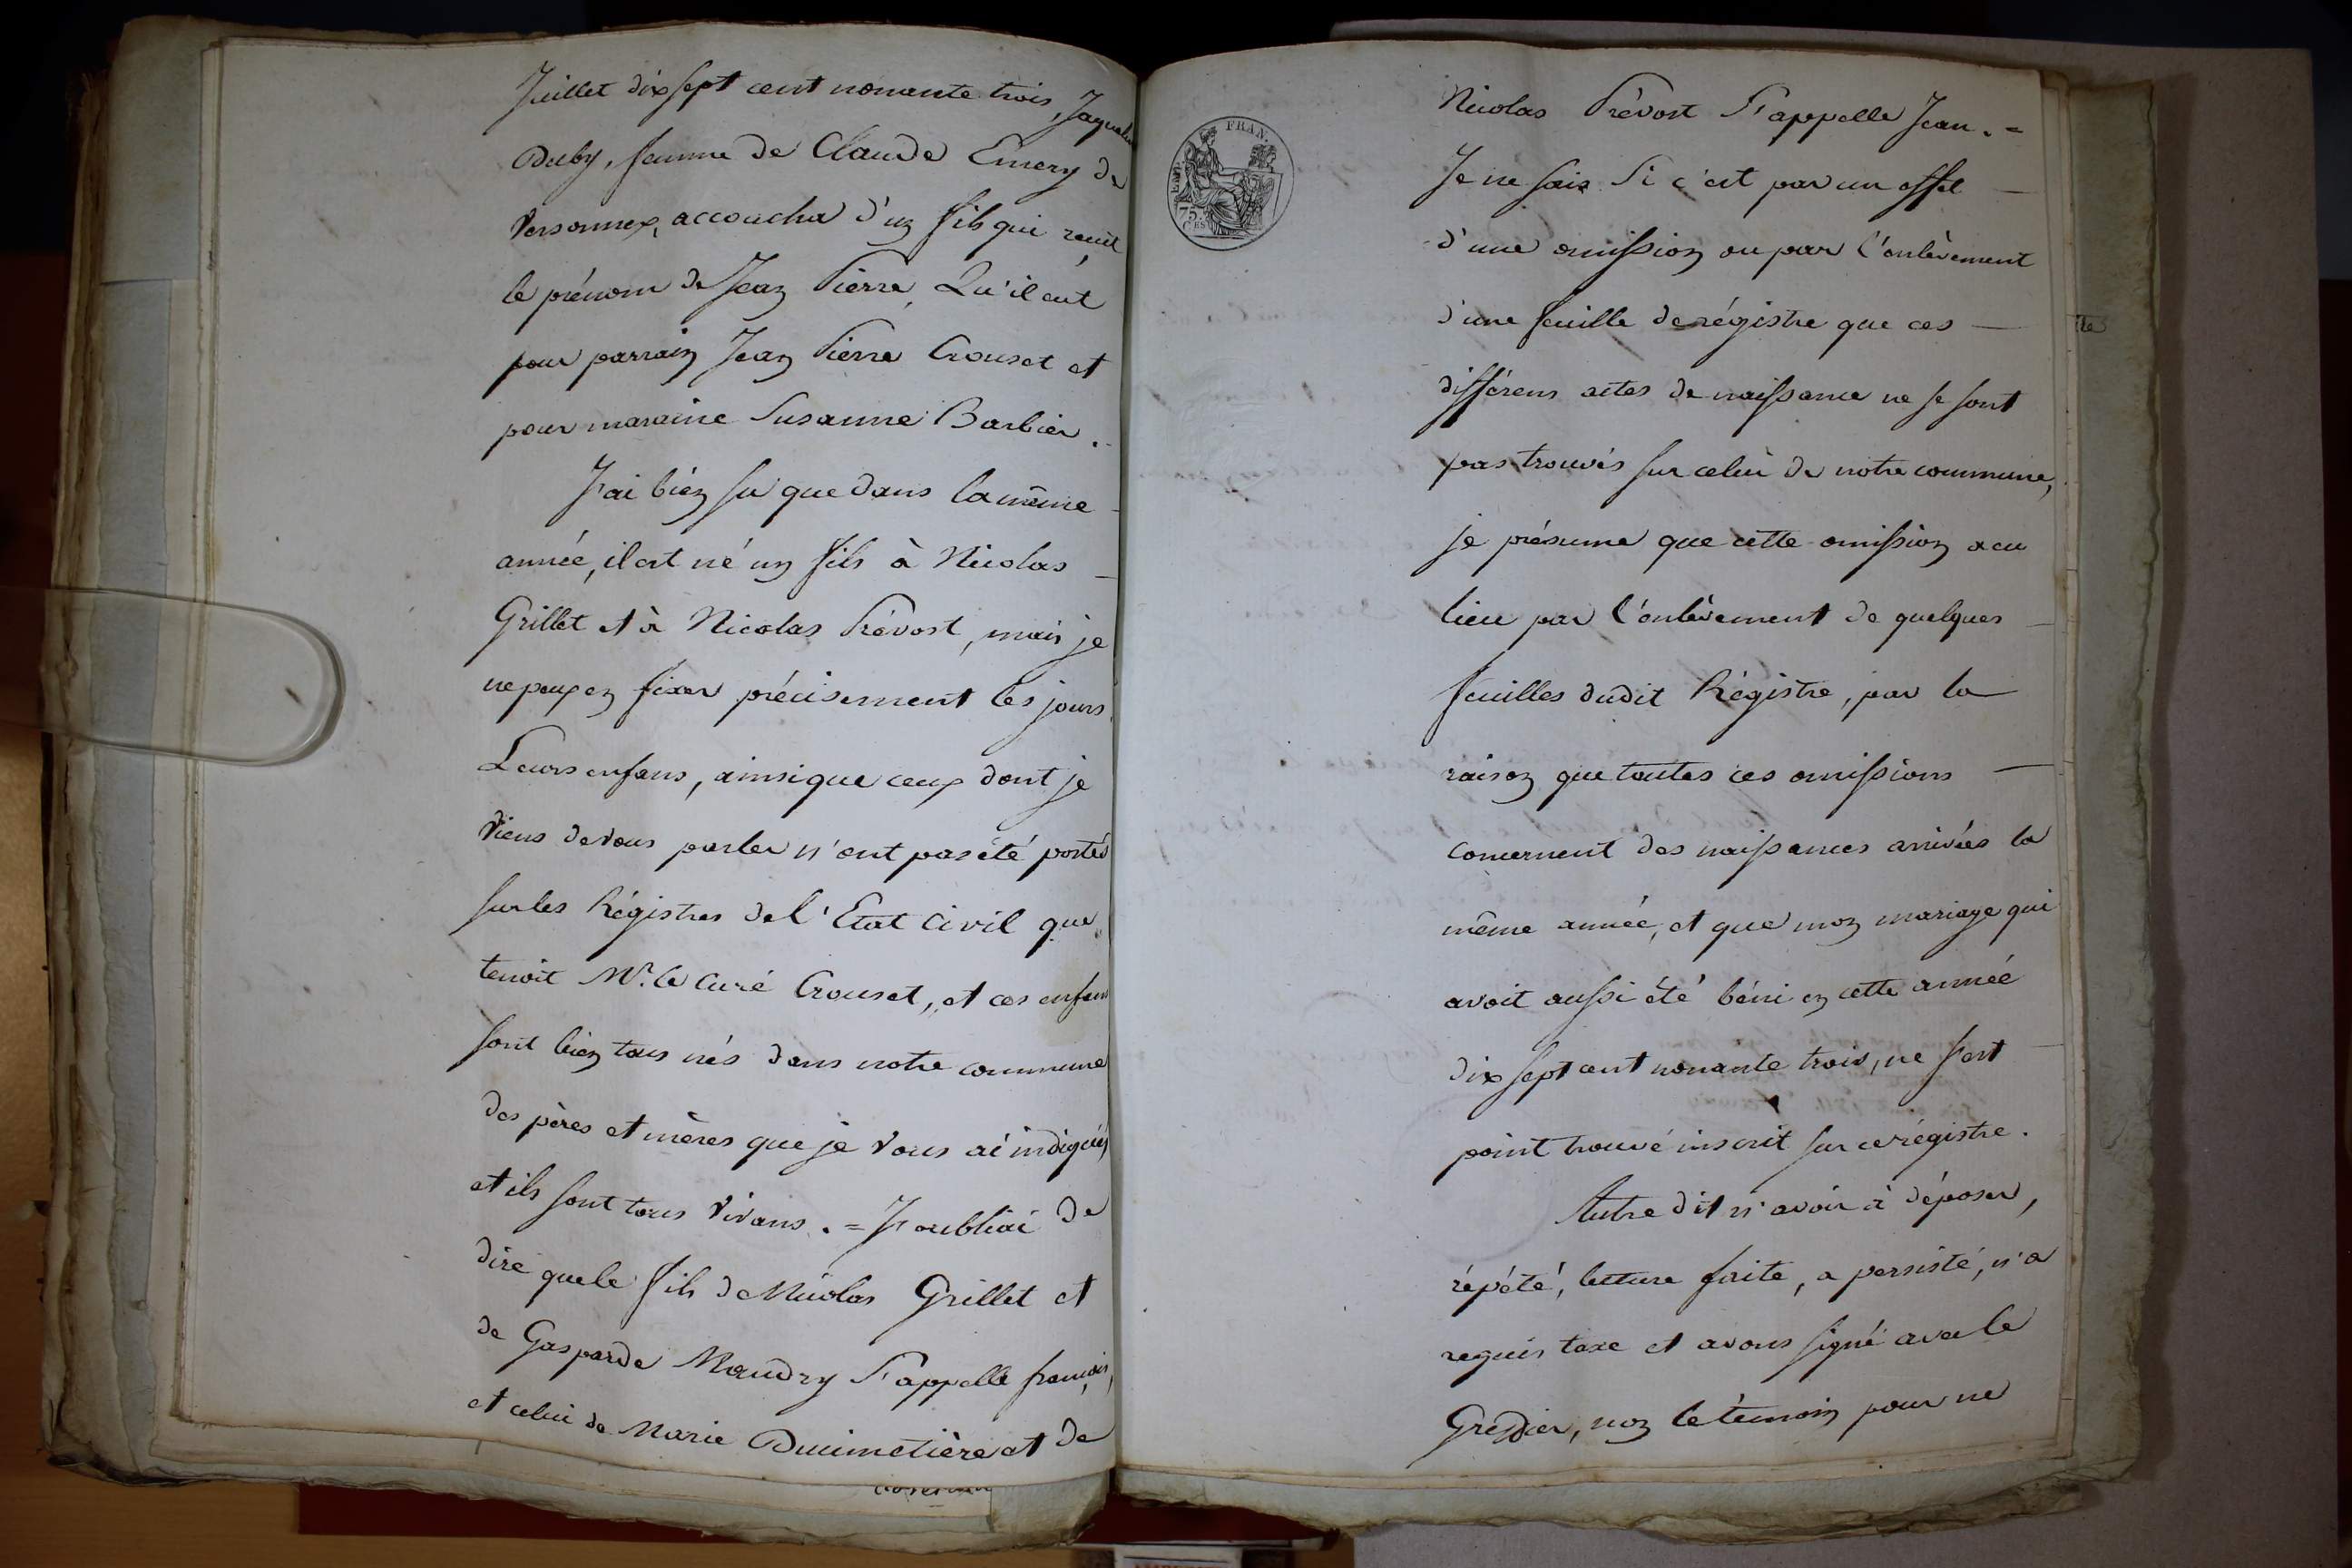 Juillet dix sept cent nonante trois, Jaqueline
Duby, femme de Claude Emery de
Versonnex, accoucha d'un fils qui reçut
le prénom de Jean Pierre, Qu'il eut
pour parrain Jean Pierre Crouset et
pour maraine Susanne Barbier.
J'ai bien su que dans la même
année, il est né un fils à Nicolas
Grillet et à Nicolas Prévost, mais je
ne peux en fixer précisement les jours.
Leurs enfans, ainsi que ceux dont je
viens de vous parler n'ont pas été portés
sur les Régistres de l'Etat Civil que
tenoit Mr. le Curé Crouset, et ces enfans
sont bien tous nés dans notre commune
des pères et mères que je vous ai indiqués
et ils sont tous vivans. = J'oubliai de
dire que le fils de Nicolas Grillet et
de Gasparde Maudry s'appelle françois,
et celui de Marie Ducimetière et de
FRAN.
75.
CES
Nicolas Prévost s'appelle Jean. =
Je ne sais si c'est par un effet
d'une omission ou par l'enlèvement
d'une feuille de régistre que ces
différens actes de naissance ne se sont
pas trouvés sur celui de notre commune,
je présume que cette omission a eu
lieu par l'enlèvement de quelques
feuilles dudit Régistre, par la
raison que toutes ces omissions
concernent des naissances arrivées la
même année, et que mon mariage qui
avoit aussi été béni en cette année
dix sept cent nonante trois, ne s'est
point trouvé inscrit sur ce régistre.
Autre dit n'avoir à déposer,
répété, lecture faite, a persisté, n'a
requis taxe et avons signé avec le
Greffier, non le témoin pour ne
te